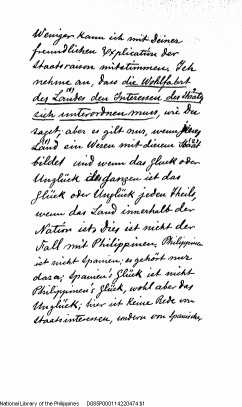 Weniger kann ich mit deiner
freundlichen Explication der
Staatsraison mitstimmen. Ich
nehme an, dass die Wohlfahrt
des Landes den Interessen des Staats
sich unterordnen muss, wie du
sagst; aber es gilt nur, wenn jenes
Land ein Wesen mit diesem Staat
bildet und wenn das Gluck oder
Unglück des ganzen ist das
Glück oder Unglück jeden theils,
wenn das Land innerhalb der
Nation ist; dies ist nicht der
Fall mit Philippinen; Philippinen
ist nicht Spanien; es gehört nur
dazu; Spanien's Glück ist nicht
Philippinen's Glück, wohl aber das
Unglück; hier ist keine Rede von
Staatsinteressen, sondern von Spanischen
National Library of the Philippines D08SP00011422047451